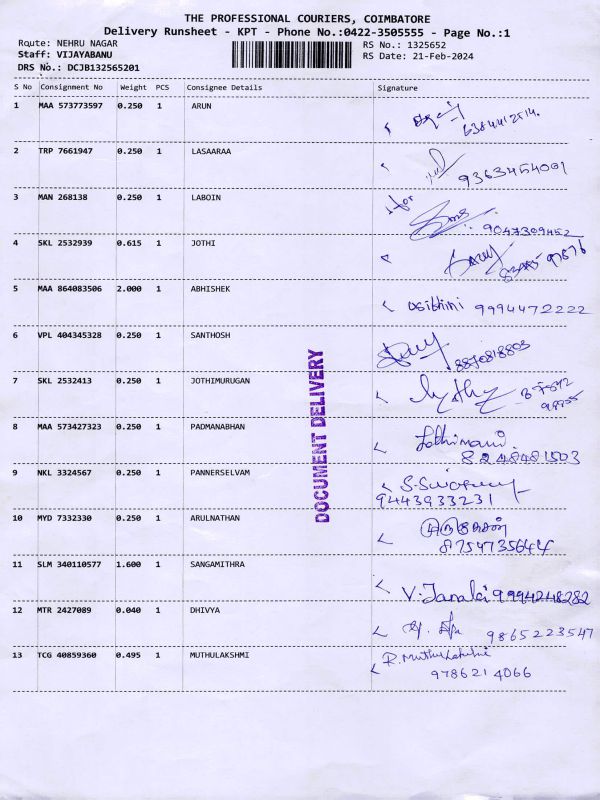 THE PROFESSIONAL COURIERS, COIMBATORE
Delivery Runsheet - KPT - Phone No.:0422-3505555 - Page No.:1
Route: NEHRU NAGAR RS No.: 1325652
Staff: VIJAYABANU RS Date: 21-Feb-2024
DRS No.: DCJB132565201
S No Consignment No Weight PCS Consignee Details Signature
1 MAA 573773597 0.250 1 ARUN
2 TRP 7661947 0.250 1 LASAARAA
9363454001
3 MAN 268138 0.250 1 LABOIN
for
9047309452
4 SKL 2532939 0.615 1 JOTHI
5 MAA 864083506 2.000 1 ABHISHEK
9994472222
6 VPL 404345328 0.250 1 SANTHOSH
8870818803
7 SKL 2532413 0.250 1 JOTHIMURUGAN
8 MAA 573427323 0.250 1 PADMANABHAN
8248481503
9 NKL 3324567 0.250 1 PANNERSELVAM
9443933231
10 MYD 7332330 0.250 1 ARULNATHAN
8754735644
11 SLM 340110577 1.600 1 SANGAMITHRA
V. Janaki 9994248282
12 MTR 2427089 0.040 1 DHIVYA
9865223547
13 TCG 40859360 0.495 1 MUTHULAKSHMI
R. Muthulakshmi
9786214066
DOCUMENT DELIVERY